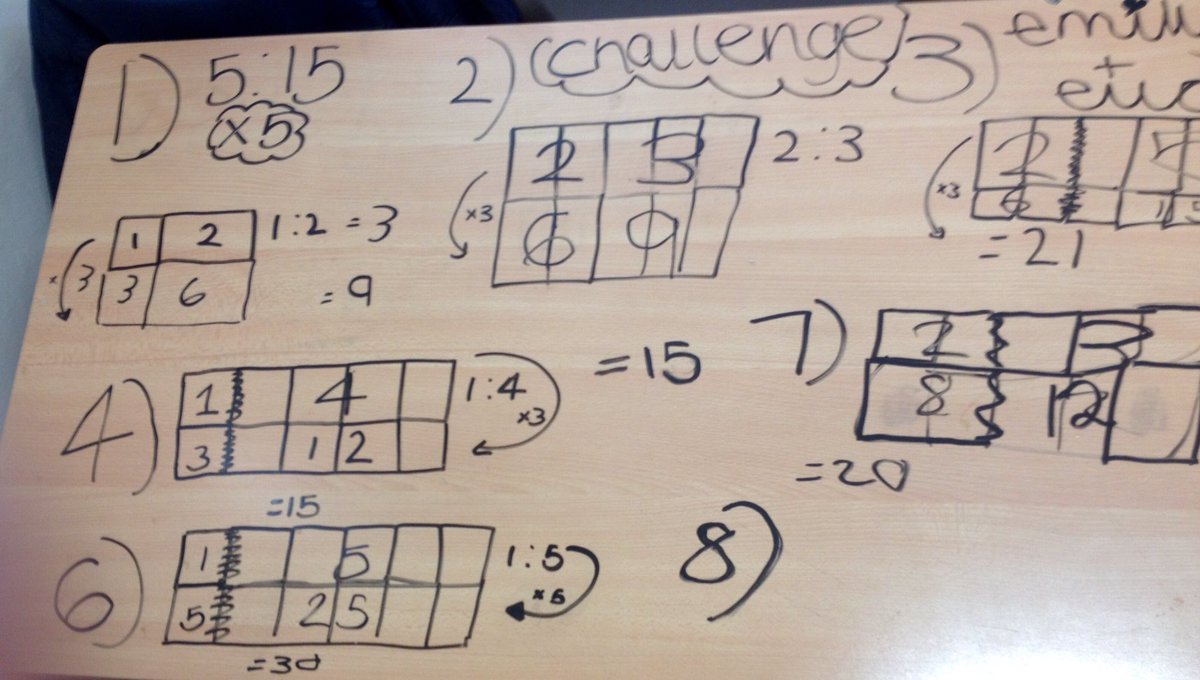 1) 5:15
×5
1 2 1:2 = 3
×3
3 6 = 9
2) (challenge)
2 3 2:3
×3
6 9
= 15
3) emily
+
2
×3
6
= 21
4) 1 4 1:4
×3
3 12
=15
6) 1 5 1:5
×5
5 25
=30
7) 2 3
8 12
=20
8)